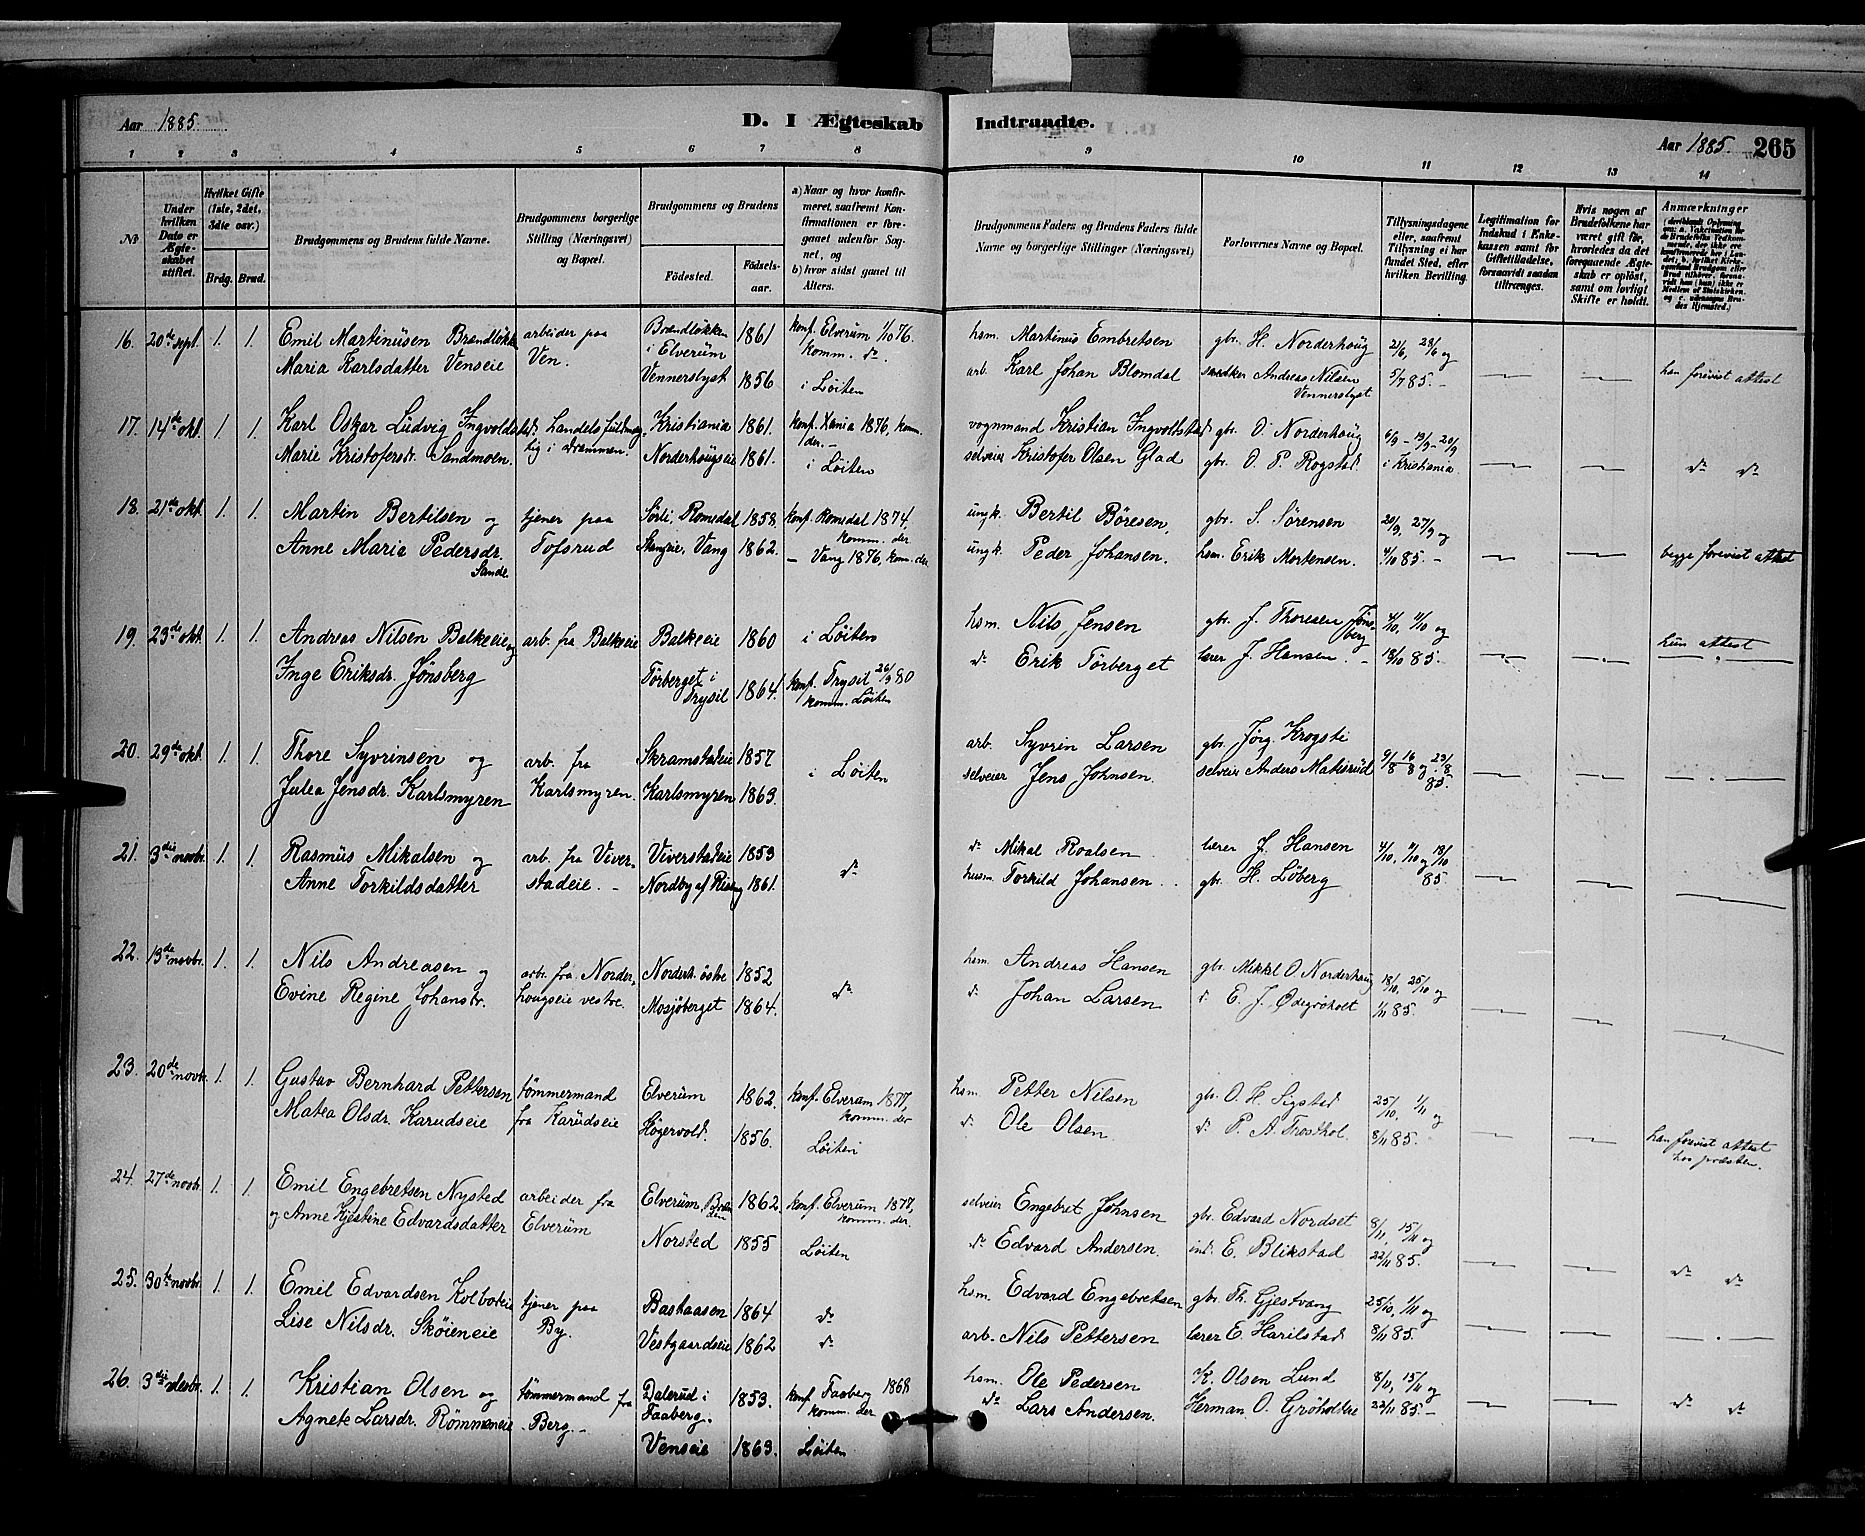 Aar 1885.
D. I Ægteskab Indtraadte.
Aar 1885. 265
1 2 3 4 5 6 7 8 9 10 11 12 13 14
№
Under hvilken Dato er Ægteskabet stiftet.
Hvilket Gifte (1ste, 2det, 3die osv.)
Brdg. Brud.
Brudgommens og Brudens fulde Navne.
Brudgommens borgerlige Stilling (Næringsvei) og Bopæl.
Brudgommens og Brudens
Födested. Födselsaar.
a) Naar og hvor konfirmeret, saafremt Konfirmationen er foregaaet udenfor Sognet, og
b) hvor sidst gaaet til Alters.
Brudgommens Faders og Brudens Faders fulde Navne og borgerlige Stillinger (Næringsvei)
Forlovernes Navne og Bopæl.
Tillysningsdagene eller, saafremt Tillysning ei har fundet Sted, efter hvilken Bevilling.
Legitimation for Indskud i Enkekassen samt for Giftetilladelse, forsaavidt saadan tiltrænges.
Hvis nogen af Brudefolkene har været gift för, hvorledes da det foregaaende Ægteskab er oplöst, samt om lovligt Skifte er holdt.
Anmærkninger
16. 20de sept. 1. 1. Emil Martinusen Brændløkke arbeider paa Brændløkken i Elverum 1861 konf. Elverum 1/10 76. komm. do. hsm. Martinus Embretsen gbr. H. Norderhoug 21/6, 28/6 og
Maria Karlsdatter Venseie Ven. Vennersbyst 1856 i Løiten arb. Karl Johan Blomdal snedker Andreas Nilsen Vennersbyst 5/7 85. — — — han forevist attest
17. 14de okt. 1. 1. Karl Oskar Ludvig Ingvoldstad Handelsfuldmæg- Kristiania 1861. konf. Xania 1876, komm. der. — vognmand Kristian Ingvoldstad gbr. O. Norderhoug 6/9 - 13/9 - 20/9
Marie Kristofersdr. Sandmoen. tig i Drammen. Norderhougseie 1861. i Løiten selveier Kristofer Olsen Glad gbr. O. P. Rogstad i Kristiania. — — do do
18. 21de okt. 1. 1. Martin Bertilsen og tjener paa Sørli, Romsdal 1858. konf. Romsdal 1874, komm. der ungk. Bertil Børesen, gbr. S. Sørensen 20/9, 27/9 og
Anne Maria Pedersdr. Sande. Tofsrud Stangeie, Vang 1862. — Vang 1876, komm. der ungk. Peder Johansen. hsm. Erik Mortensen. 4/10 85. — — — begge forevist attest
19. 23de okt. 1. 1. Andreas Nilsen Balkeeie og arb. fra Balkeeie Balkeeie 1860 i Løiten hsm. Nils Jensen gbr. J. Thoresen Jønsberg 4/10, 11/10 og
Inge Eriksdr. Jønsberg Tørberget i Trysil 1864. konf. Trysil 26/9 80 komm. Løiten do Erik Tørberget lærer J. Hansen. — 18/10 85. — — — hun attest
20. 29de okt. 1. 1. Thore Syvrinsen og arb. fra Skramstadeie 1857 i Løiten arb. Syvrin Larsen gbr. Jørg. Krogsti 9/8 16/8 og 23/8 85.
Julea Jensdr. Karlsmyren Karlsmyren. Karlsmyren 1863. selveier Jens Johnsen. selveier Anders Matisrud — — — . —
21. 3die novbr. 1. 1. Rasmus Mikalsen og arb. fra Viver- Viverstadeie 1853 do do Mikal Roalsen lærer J. Hansen 4/10, 11/10 og 18/10
Anne Torkildsdatter stadeie. — Nordby af Rising 1861. husm. Torkild Johansen. gbr. H. Løberg 85. — — —
22. 13de novbr. 1. 1. Nils Andreasen og arb. fra Norder- Norderh. østre 1852 do hsm. Andreas Hansen gbr. Mikkel O. Norderhoug 18/10, 25/10 og
Evine Regine Johansdr. hougseie vestre. Mosjøberget 1864. do Johan Larsen do E. J. Ødegrøholt 1/11 85. — — —
23. 20de novbr. 1. 1. Gustav Bernhard Pettersen tømmermand Elverum 1862. konf. Elverum 1877, komm. der hsm. Petter Nilsen gbr. O. H. Sigstad 25/10, 1/11 og
Matea Olsdr. Karudseie fra Karudseie Høgervold. 1856. Løiten do Ole Olsen. do P. A. Trosthol. 8/11 85. — — han forevist attest hos præsten.
24. 27de novbr. 1. 1. Emil Engebretsen Nysted arbeider fra Elverum, 1862. konf. Elverum 1877, komm. der. selveier Engebret Johnsen gbr. Edvard Nordset 8/11, 15/11 og
og Anne Kjestine Edvardsdatter Elverum Norsted 1855 Løiten do Edvard Andersen. ind. E. Blikstad 22/11 85. — — do do
25. 30te novbr. 1. 1. Emil Edvardsen Kolboteie tjener paa Bastaasen 1864 do hsm. Edvard Engebretsen gbr. Th. Gjestvang 25/10, 1/11 og
Lise Nilsdr. Skøieneie By. Vestgaardseie 1862 do arb. Nils Pettersen lærer E. Harilstad 8/11 85. — — — . —
26. 3die desbr. 1. 1. Kristian Olsen og tømmermand fra Dalerud i Faaberg. 1853. konf. Faaberg 1868 komm. der hsm. Ole Pedersen K. Olsen Lund 8/11, 15/11 og
Agnete Larsdr. Rømmaneie Berg. — Venseie 1863. Løiten do Lars Andersen. Herman O. Grøholdtne 22/11 85. — — — do do